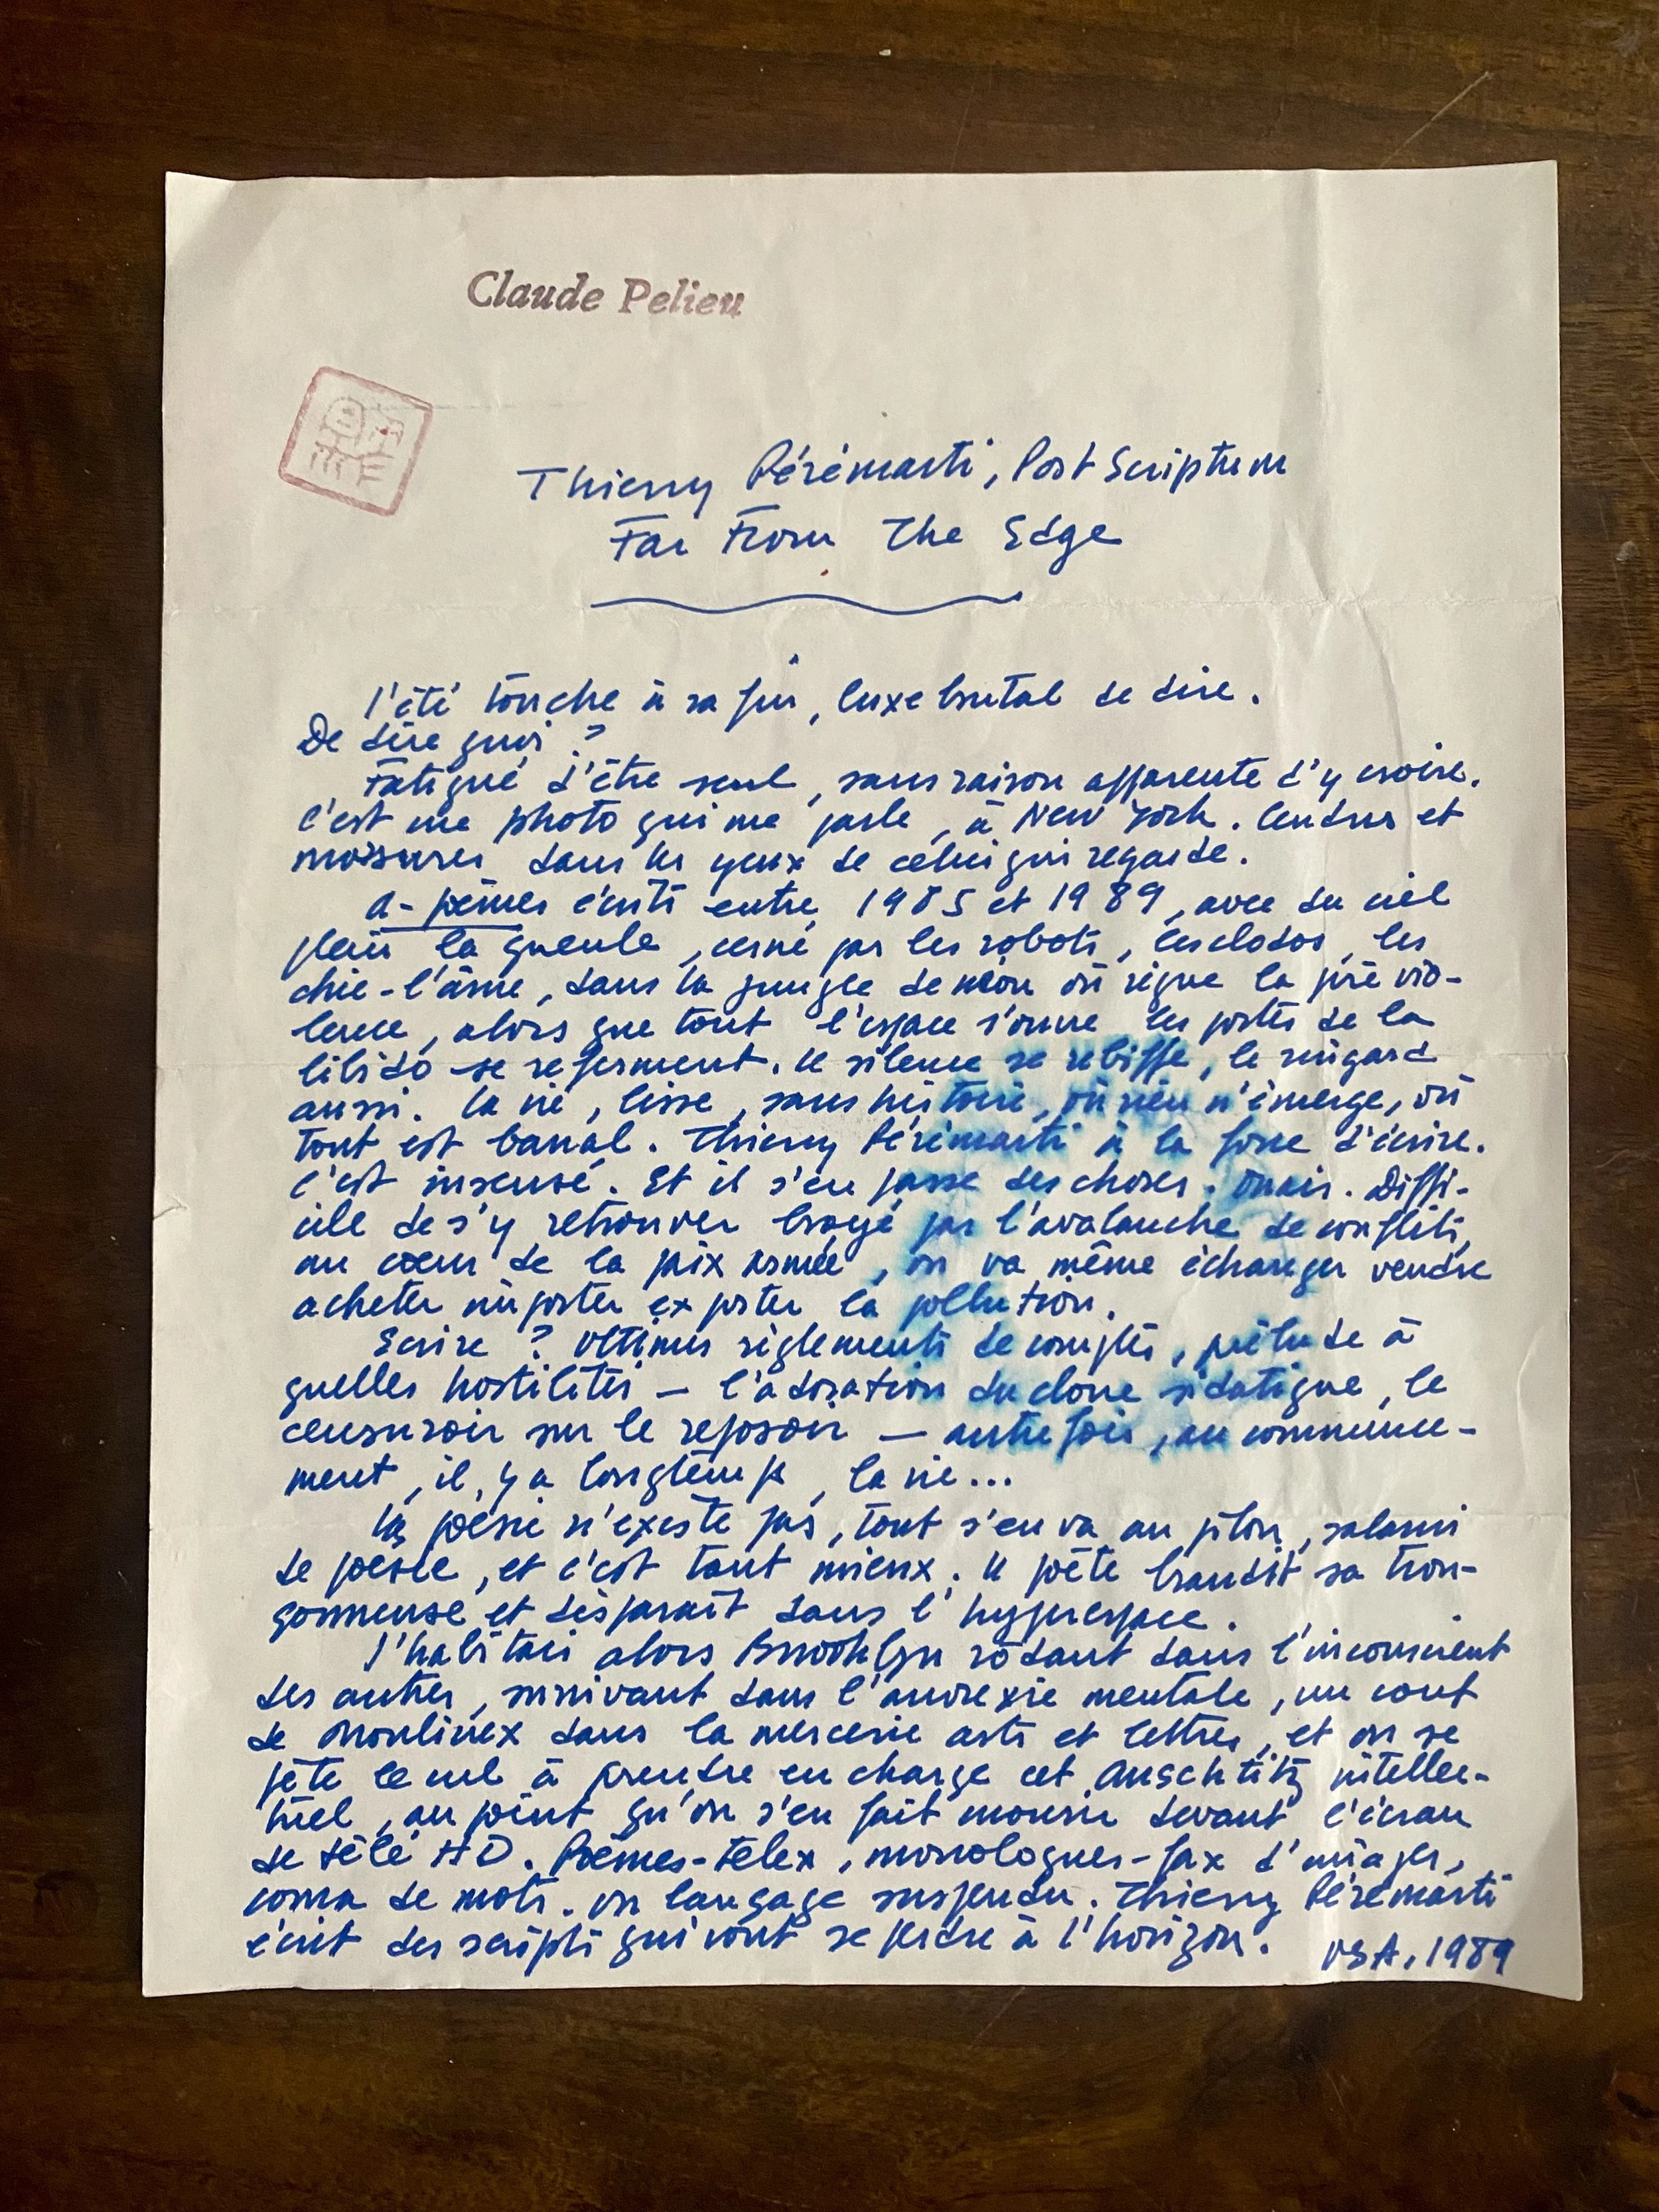 Claude Pelieu
Thierry Pérémarti, Post Scriptum
Far From The Edge
l'été touche à sa fin, luxe brutal de dire.
De dire quoi ?
Fatigué d'être seul, sans raison apparente d'y croire.
C'est une photo qui me parle, à New York. Cendres et
moisures dans les yeux de celui qui regarde.
a-poèmes écrits entre 1985 et 1989, avec du ciel
plein la gueule, cerné par les robots, les clodos, les
chie-l'âme, dans la jungle de néon où règne la pré vio-
lence, alors que tout l'espace s'ouvre les portes de la
libido se referment. Le silence se rebiffe, le ringard
aussi. La vie, lisse, sans histoire, où rien n'émerge, où
tout est banal. Thierry Pérémarti a la force d'écrire.
C'est insensé. Et il s'en passe des choses. Ouais. Diffi-
cile de s'y retrouver broyé par l'avalanche de conflits,
au cœur de la paix armée, on va même échanger vendre
acheter importer exporter la pollution.
Ecrire ? Ultimes règlements de comptes, prélude à
quelles hostilités — l'adoration du clone sidatique, le
censuroir sur le reposoir — autrefois, au commence-
ment, il y a longtemps, la vie...
La poésie n'existe pas, tout s'en va au pilon, salami
de poésie, et c'est tant mieux. Le poète brandit sa tron-
çonneuse et disparaît dans l'hyperespace.
J'habitais alors Brooklyn rôdant dans l'inconscient
des autres, survivant dans l'anorexie mentale, un cout
de Moulinex dans la mercerie arts et lettres, et on se
pète le cul à prendre en charge cet Auschtitz intellec-
tuel, au point qu'on s'en fait mourir devant l'écran
de télé HD. Poèmes-telex, monologues-fax d'images,
coma de mots. Un langage suspendu. Thierry Pérémarti
écrit des scripts qui vont se perdre à l'horizon. USA, 1989